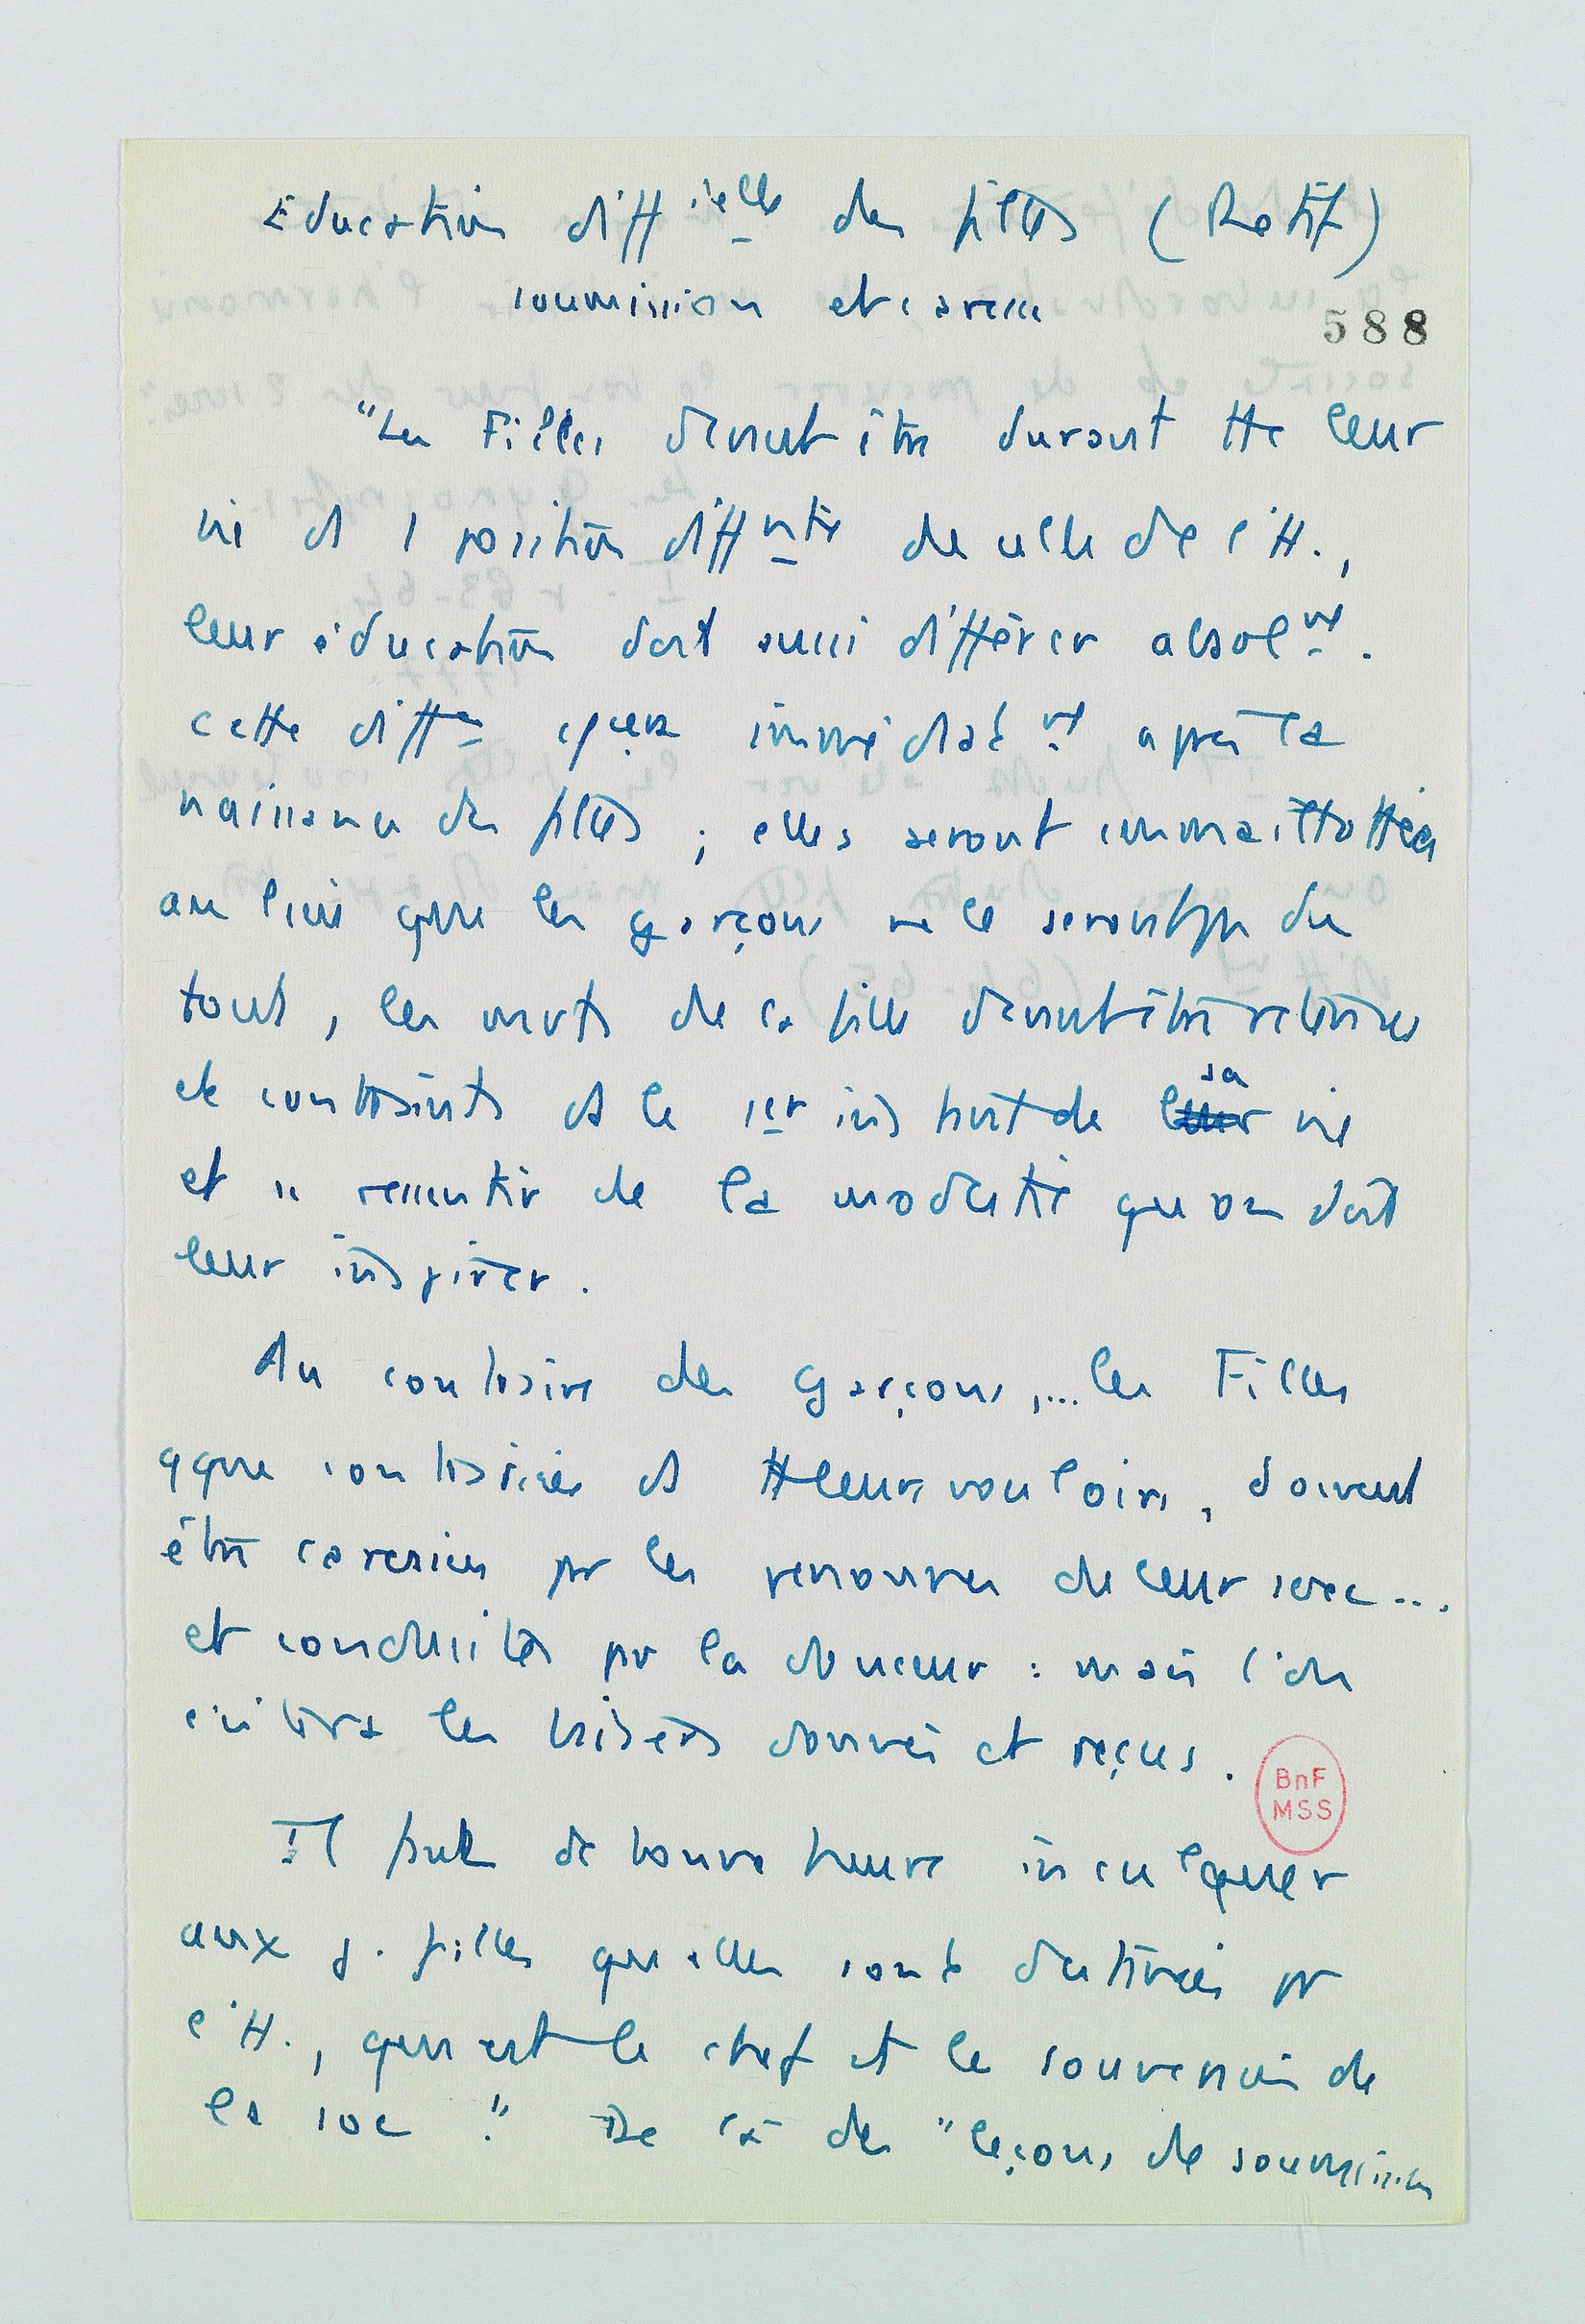 Education diff^ielle des filles (Retif)
soumission et caresse
588
"Les Filles devant être durant tte leur
vie ds 1 position diff^nte de celle de l'H.,
leur éducation doit aussi différer absol^nt.
cette diff^ce immédiat^nt après la
naissance des filles ; elles seront emmaillottées
au lieu que les garçons ne le seront pr du
tout, les mvts de la fille devant être retenus
et contraints ds le 1er instant de leur sa vie
et se ressentir de la modestie que on doit
leur inspirer.
Au contraire des Garçons,... les Filles
qque contrariées ds tt leurs vouloirs, doivent
être caressées pr les personnes de leur sexe...
et conduites pr la douceur : mais l'on
évitera les baisers donnés et reçus.
BnF
MSS
Il faut de bonne heure inculquer
aux j. filles que elles sont destinées pr
l'H., qui est le chef et le souverain de
la soc ". De là des "leçons de soumission